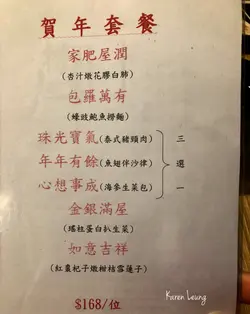 賀年套餐
家肥屋潤
(杏汁燉花膠白肺)
包羅萬有
(蠔豉鮑魚撈麵)
珠光寶氣(泰式豬頸肉)
年年有餘(魚翅伴沙律)
心想事成(海參生菜包)
三選一
金銀滿屋
(瑤柱蛋白扒生菜)
如意吉祥
(紅棗杞子燉柑桔雪蓮子)
$168/位
Karen Leung